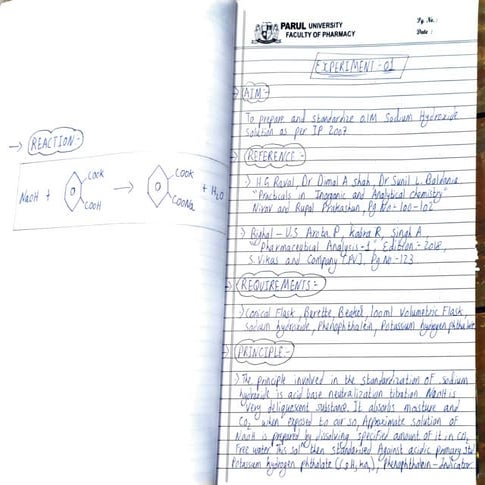 → REACTION:-
NaOH +
COOK
COOH
→
COOK
COONa
+ H2O
PARUL UNIVERSITY
FACULTY OF PHARMACY
Pg. No. :
Date :
EXPERIMENT-01
→ AIM:-
To prepare and standardize 0.1M Sodium Hydroxide
Solution as per IP 2007
→ REFERENCE:-
> H.G Raval, Dr Dimal A shah, Dr Sunil L. Baldania
"Practicals in Inorganic and Analytical chemistry"
Nirav and Rupal Prakashan, Pg No:- 100-102
> V.S Arota P, Kalra R, Singh A,
"Pharmaceutical Analysis-1", Edition:- 2018,
S. Vikas and Company [PV], Pg No.-123
→ REQUIREMENTS:-
> Conical Flask, Burette, Beaker, 100ml Volumetric Flask,
Sodium hydroxide, Phenophthalein, Potassium hydrogen phthalate
→ PRINCIPLE:-
> The principle involved in the standardization of sodium
hydroxide is acid base neutralization titration NaOH is
Very deliquescent substance. It absorbs moisture and
CO2 when exposed to air so, Approximate solution of
NaOH is prepared by dissolving specified amount of it in CO2
Free water. This sol then standardised Against acidic primary std
Potassium hydrogen phthalate Phenophthalein-Indicator